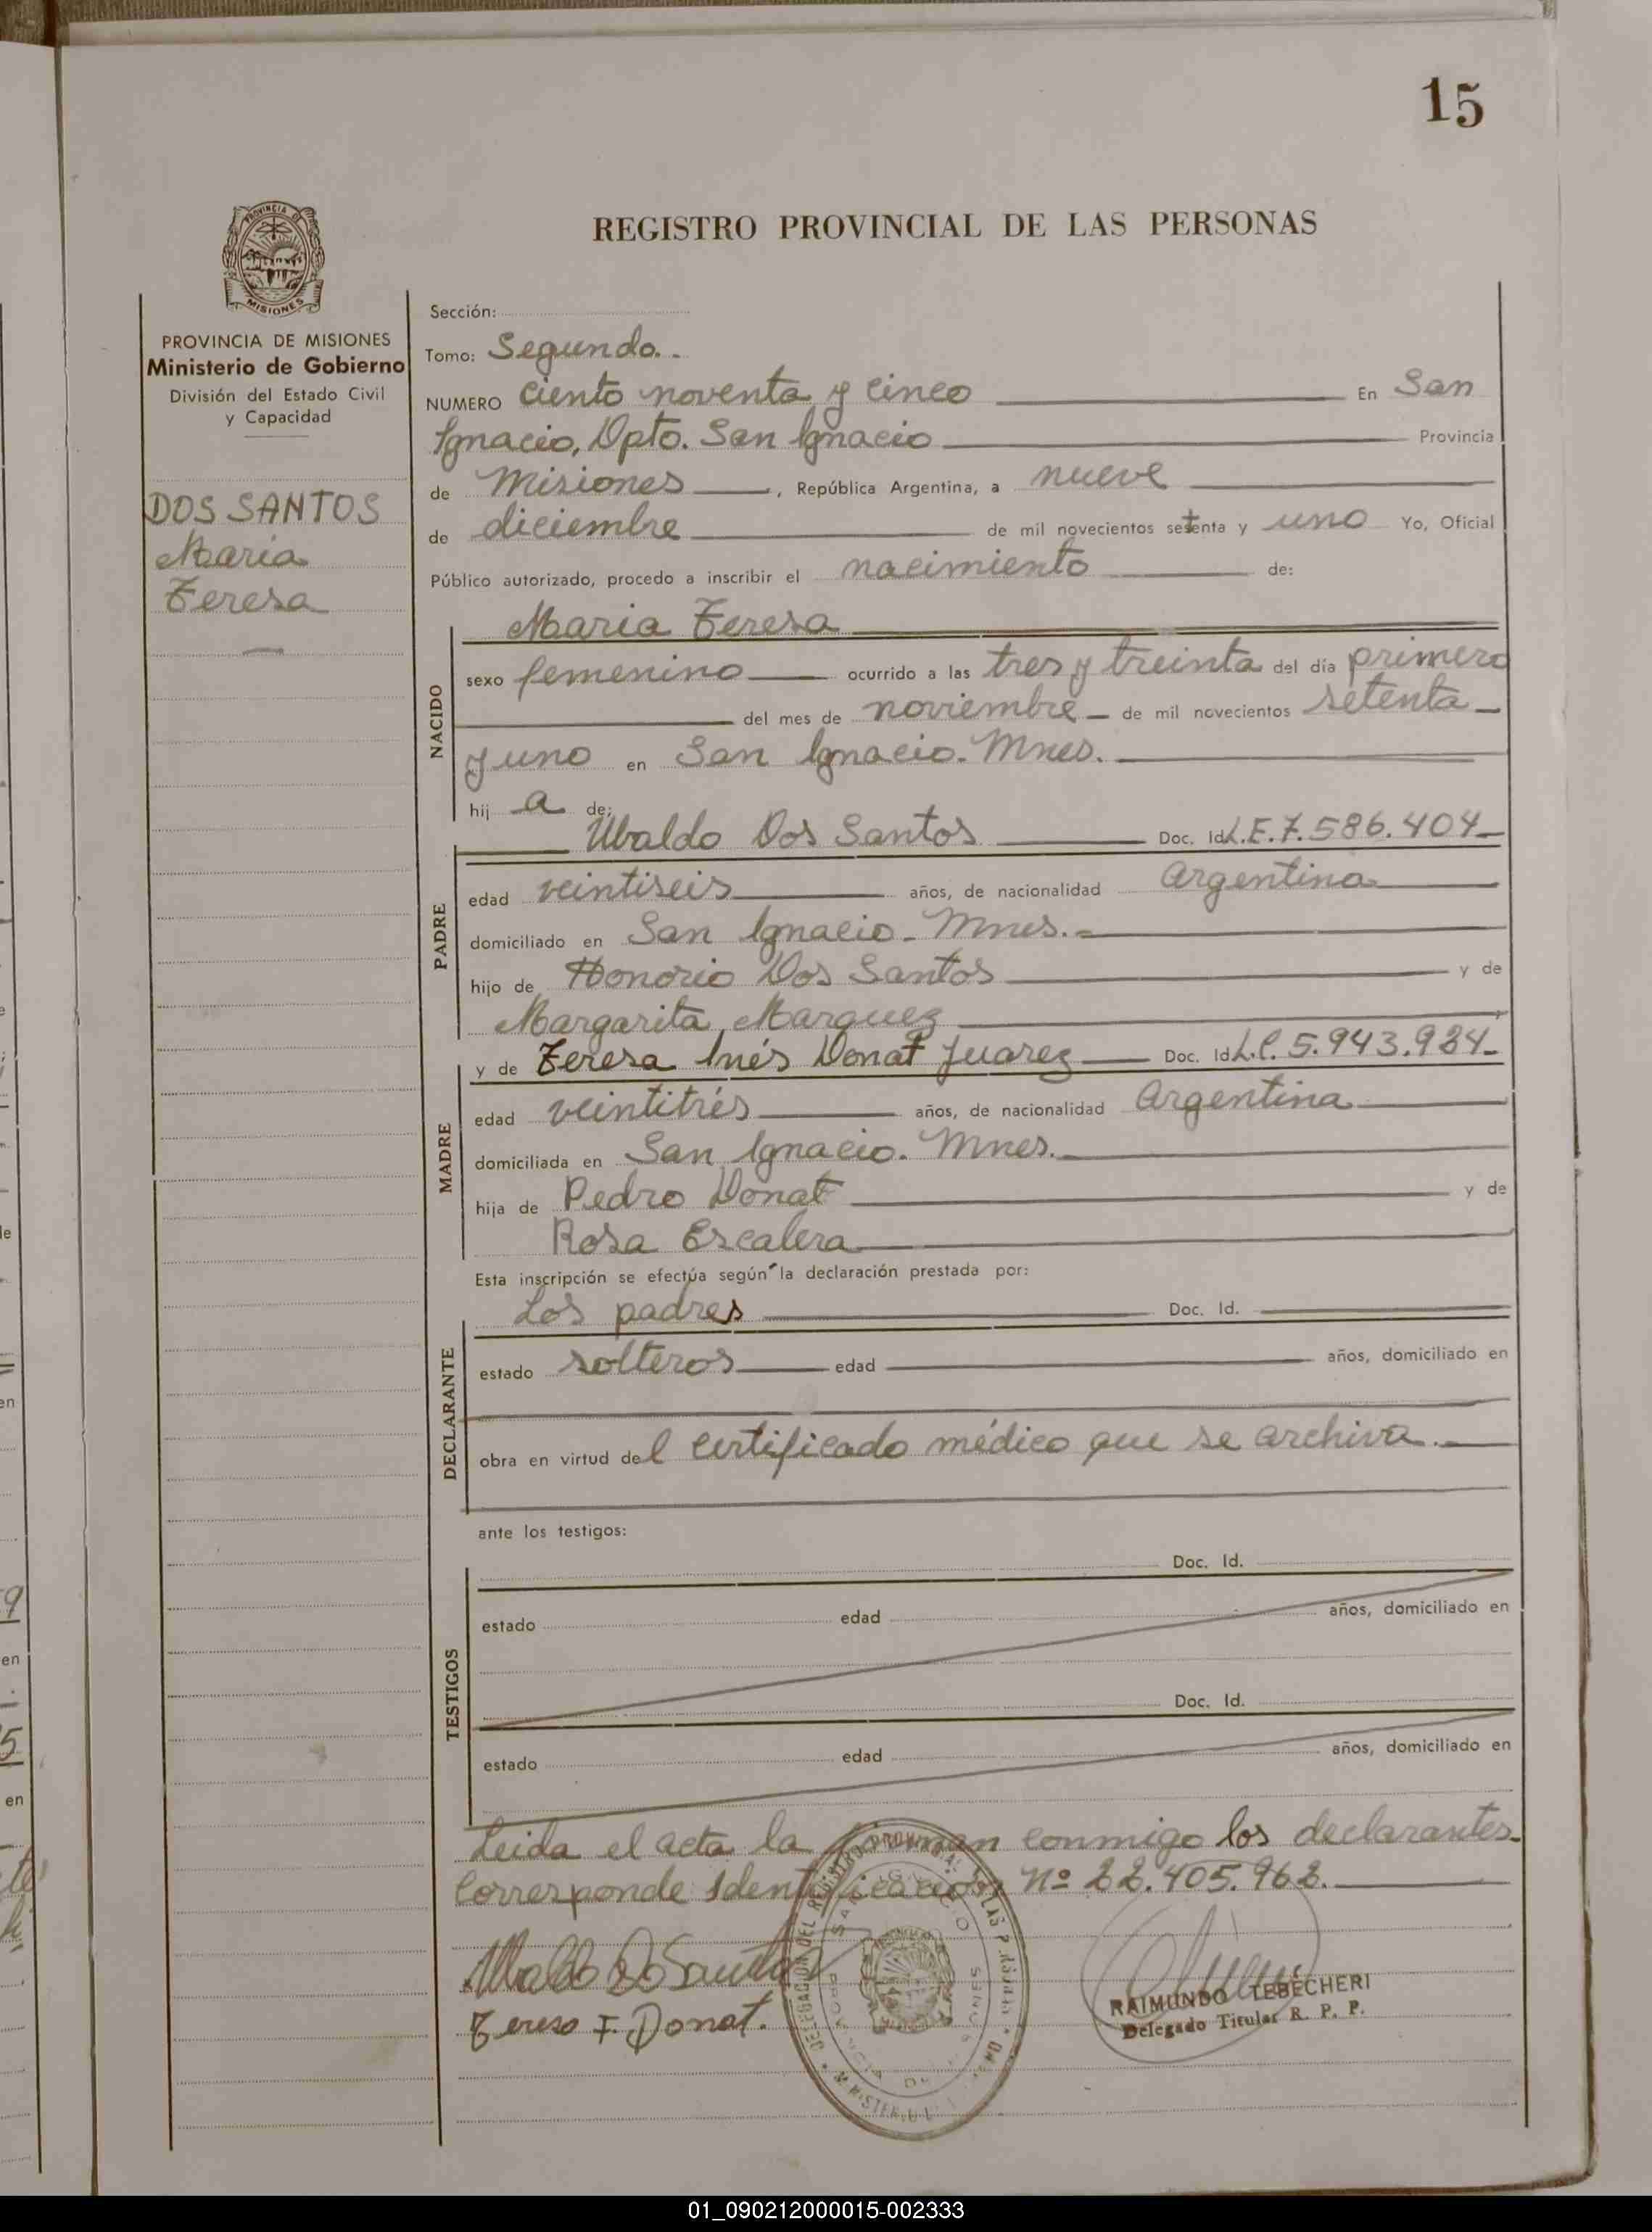 15
REGISTRO PROVINCIAL DE LAS PERSONAS
PROVINCIA DE
MISIONES
PROVINCIA DE MISIONES
Ministerio de Gobierno
División del Estado Civil
y Capacidad
DOS SANTOS
Maria
Teresa
Sección:
Tomo: Segundo.
NUMERO ciento noventa y cinco En San
Ignacio, Dpto. San Ignacio Provincia
de Misiones, República Argentina, a nueve
de diciembre de mil novecientos setenta y uno Yo, Oficial
Público autorizado, procedo a inscribir el nacimiento de:
NACIDO
Maria Teresa
sexo femenino ocurrido a las tres y treinta del día primero
del mes de noviembre de mil novecientos setenta
y uno en San Ignacio. Mnes.
hij a de:
PADRE
Ubaldo Dos Santos Doc. Id. L.E. 7.586.404
edad veintiseis años, de nacionalidad Argentina
domiciliado en San Ignacio - Mnes.
hijo de Honorio Dos Santos y de
Margarita Marquez
MADRE
y de Teresa Inés Donat Juarez Doc. Id. L.C. 5.943.984
edad veintitrés años, de nacionalidad Argentina
domiciliada en San Ignacio. Mnes.
hija de Pedro Donat y de
Rosa Escalera
Esta inscripción se efectúa según la declaración prestada por:
DECLARANTE
Los padres Doc. Id.
estado solteros edad años, domiciliado en
obra en virtud del certificado médico que se archiva.
ante los testigos:
TESTIGOS
Doc. Id.
estado edad años, domiciliado en
Doc. Id.
estado edad años, domiciliado en
Leida el acta la firman conmigo los declarantes.
Corresponde Identificación Nº 22.405.962.
Teresa I. Donat.
RAIMUNDO TEBECHERI
Delegado Titular R. P. P.
01_090212000015-002333